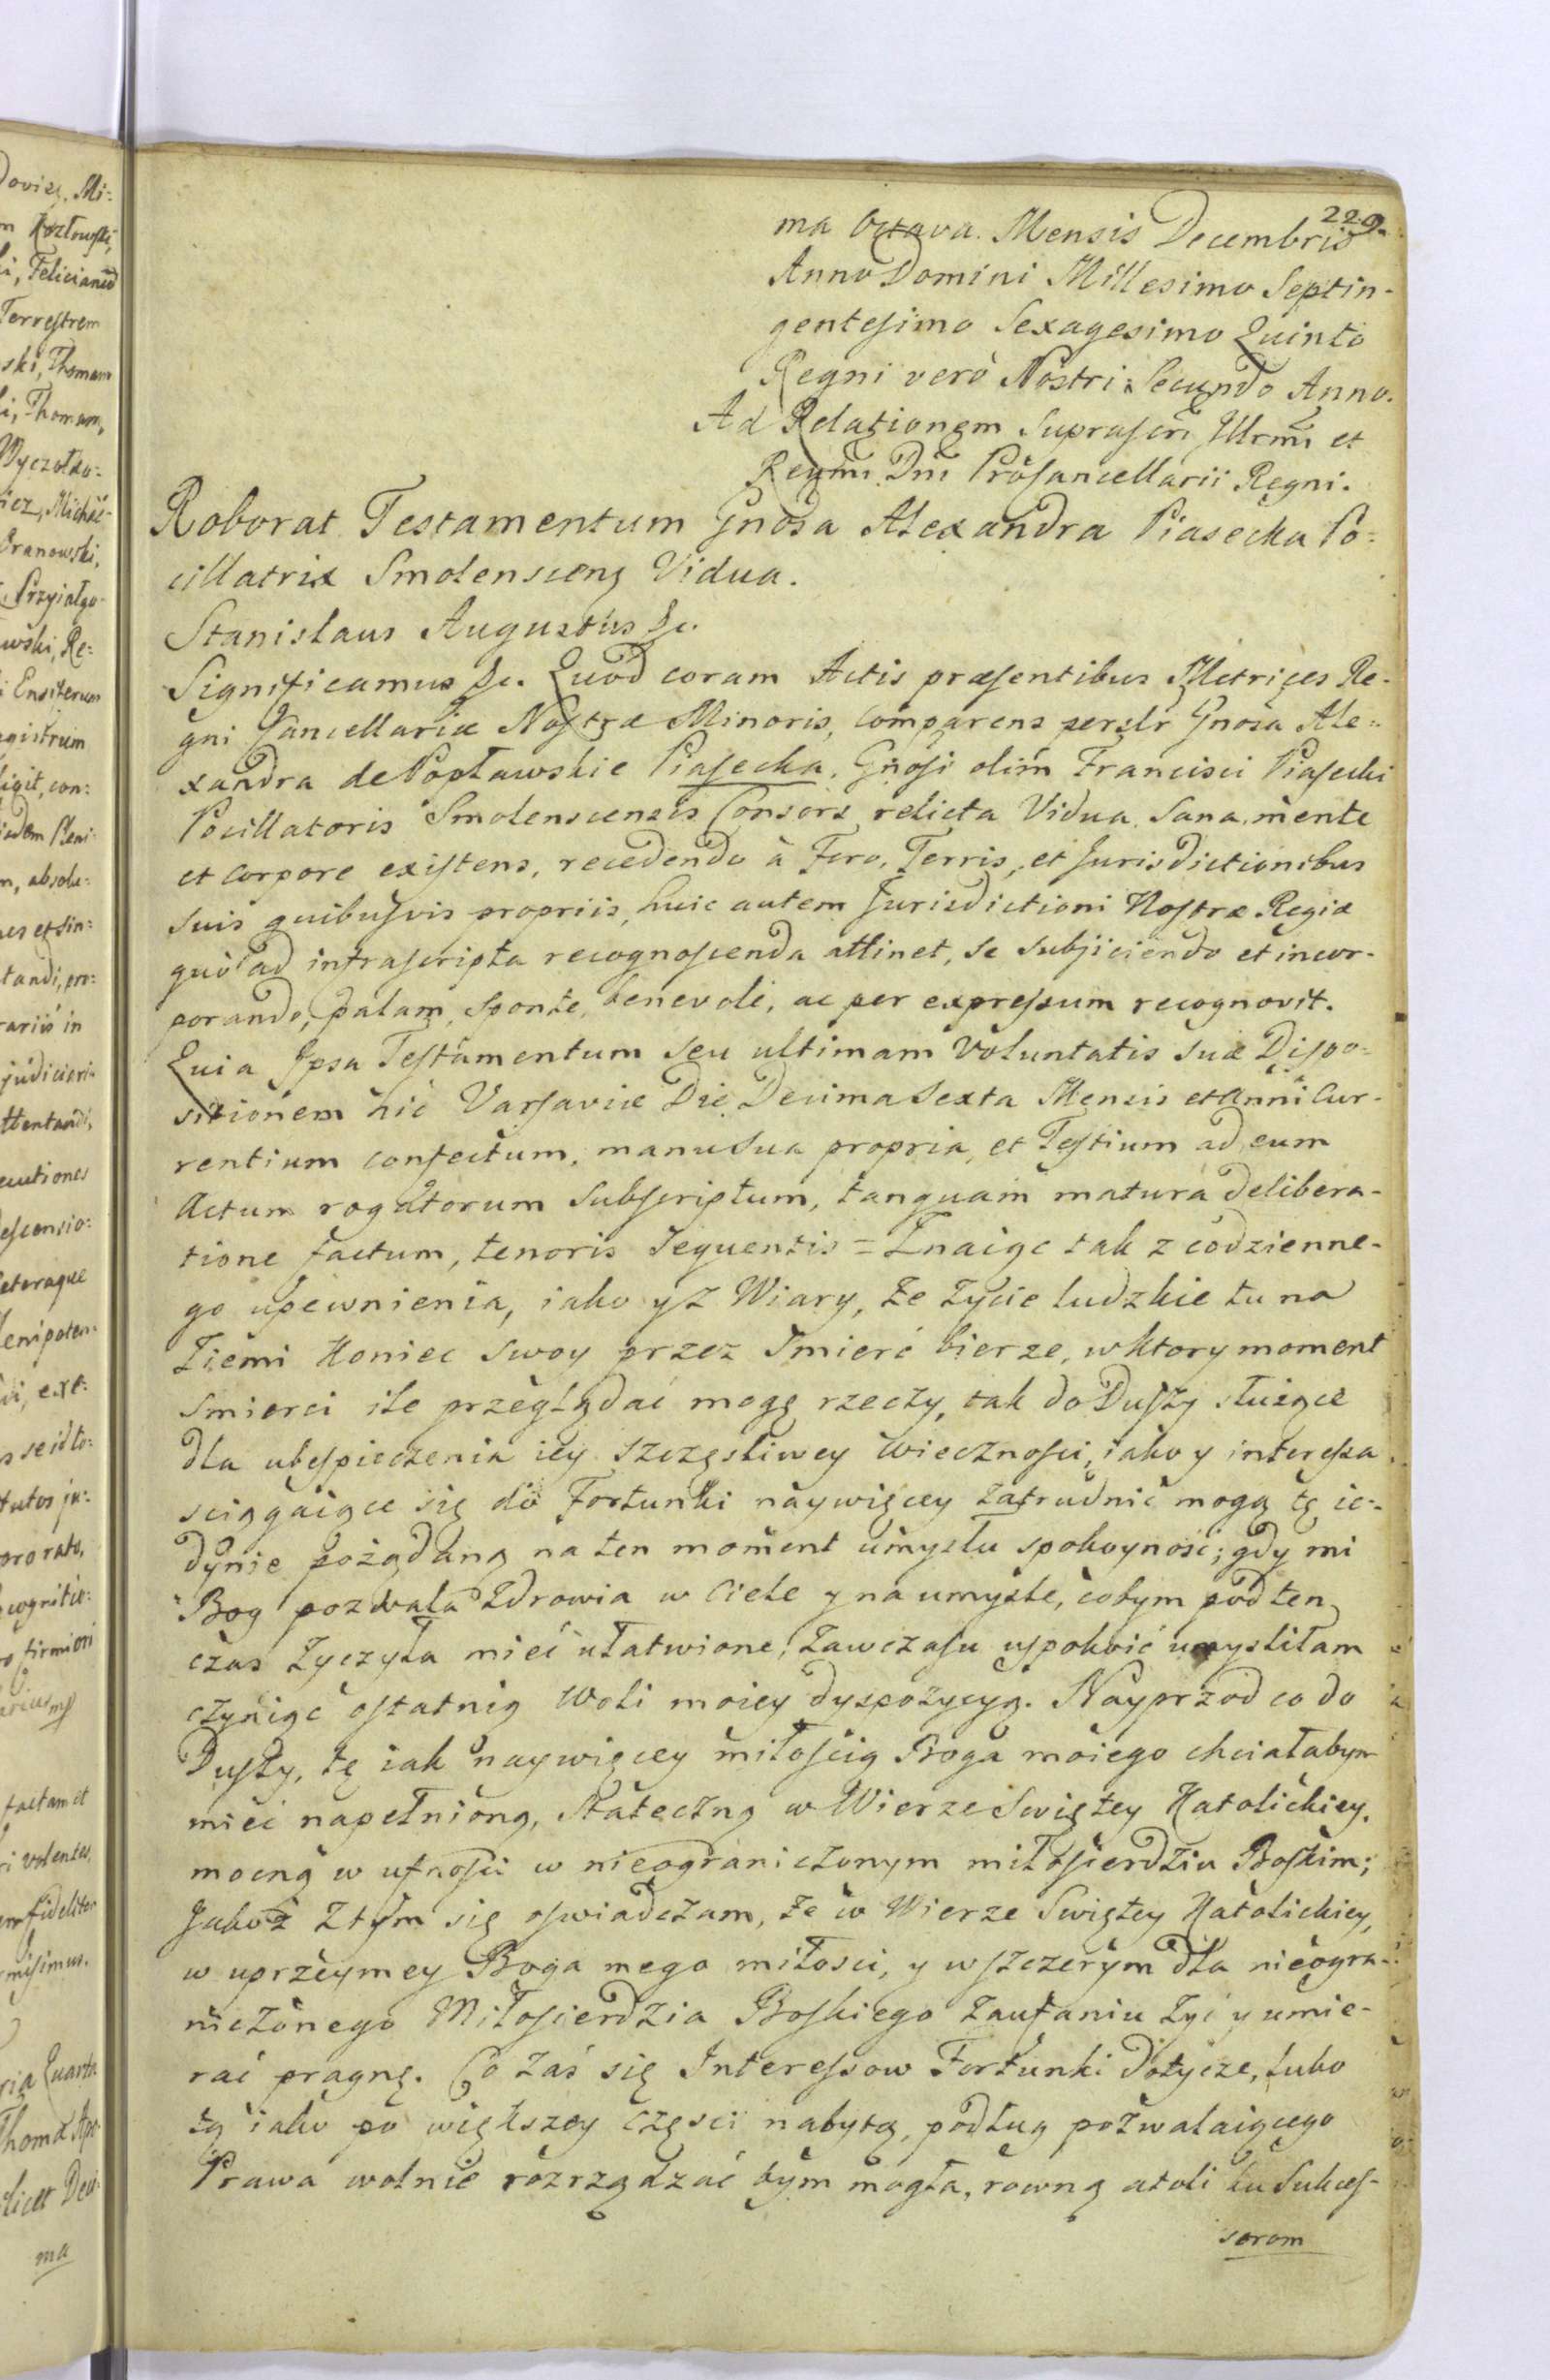 229.
ma Octava Mensis Decembris
Anno Domini Millesimo Septin-
gentesimo Sexagesimo Quinto
Regni verò Nostri Secundo Anno.
Ad Relationem Suprascri Illrmi et
Rndmi Dni ProCancellarii Regni.
Roborat Testamentum Gnosa Alexandra Piasecka Po-
cillatrix Smolenscens Vidua.
Stanislaus Augustus &c.
Significamus &c. Quod coram Actis præsentibus Metrices Re-
gni Cancellariæ Nostræ Minoris, comparens perslr Gnosa Ale-
xandra de Popławskie Piasecka, Gnosi olim Francisci Piasecki
Pocillatoris Smolenscensis Consors relicta Vidua. Sana mente
et corpore existens, recedendo à Foro, Terris, et Jurisdictionibus
suis quibusvis propriis, huic autem Jurisdictioni Nostræ Regiæ
quo ad infrascripta recognoscenda attinet, se subjiciendo et incor-
porando, palam, sponte, benevole, ac per expressum recognovit.
Quia Ipsa Testamentum seu ultimam Voluntatis suæ Dispo-
sitionem hic Varsaviæ Die Decima Sexta Mensis et Anni Cur-
rentium confectum, manu Sua propria, et Testium ad eum
Actum rogatorum Subscriptum, tanquam matura delibera-
tione factum, tenoris sequentis = Znaiąc tak z codzienne-
go upewnienia, iako y z Wiary, że życie ludzkie tu na
Ziemi Koniec swoy przez śmierć bierze, w ktory moment
smierci ile przeglądać mogę rzeczy, tak do Duszy służące
dla ubespieczenia iey szczęsliwey wiecznosci, iako y interessa
sciągaiące się do Fortunki naywięcey zatrudnić mogą tę ie-
dynie pożądaną na ten moment umysłu spokoyność; gdy mi
Bog pozwala Zdrowia w Ciele y na umyśle, cobym pod ten
czas życzyła mieć ułatwione, zawczasu uspokoić umysliłam
czyniąc ostatnią Woli moiey dyspozycyą. Nayprzod co do
Duszy, tę iak naywięcey miłością Boga moiego chciałabym
mieć napełnioną, stateczną w Wierze Swiętey Katolickiey,
mocną w ufności w nieograniczonym miłosierdziu Boskim;
Jakoż z tym się oswiadczam, że w Wierze Swiętey Katolickiey,
w uprzeymey Boga mego miłosci, y w szczerym dla nieogra-
niczonego Miłosierdzia Boskiego zaufaniu żyć y umie-
rać pragnę. Co zaś się Interessow Fortunki dotycze, lubo
tą iako po większey części nabytą, podług pozwalaiącego
Prawa wolnie rozrządzać bym mogła, rowną atoli ku Sukces-
sorom